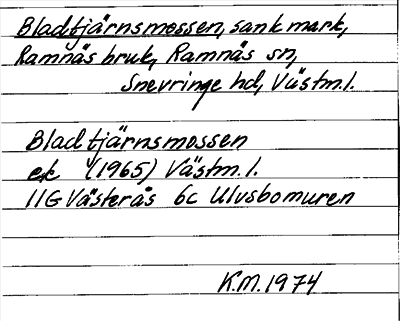 Bladtjärnsmossen, sank mark,
Ramnäs bruk, Ramnäs sn,
Snevringe hd, Västm.l.
Bladtjärnsmossen
ek (1965) Västm.l.
11G Västerås 6c Ulvsbomuren
K.M. 1974